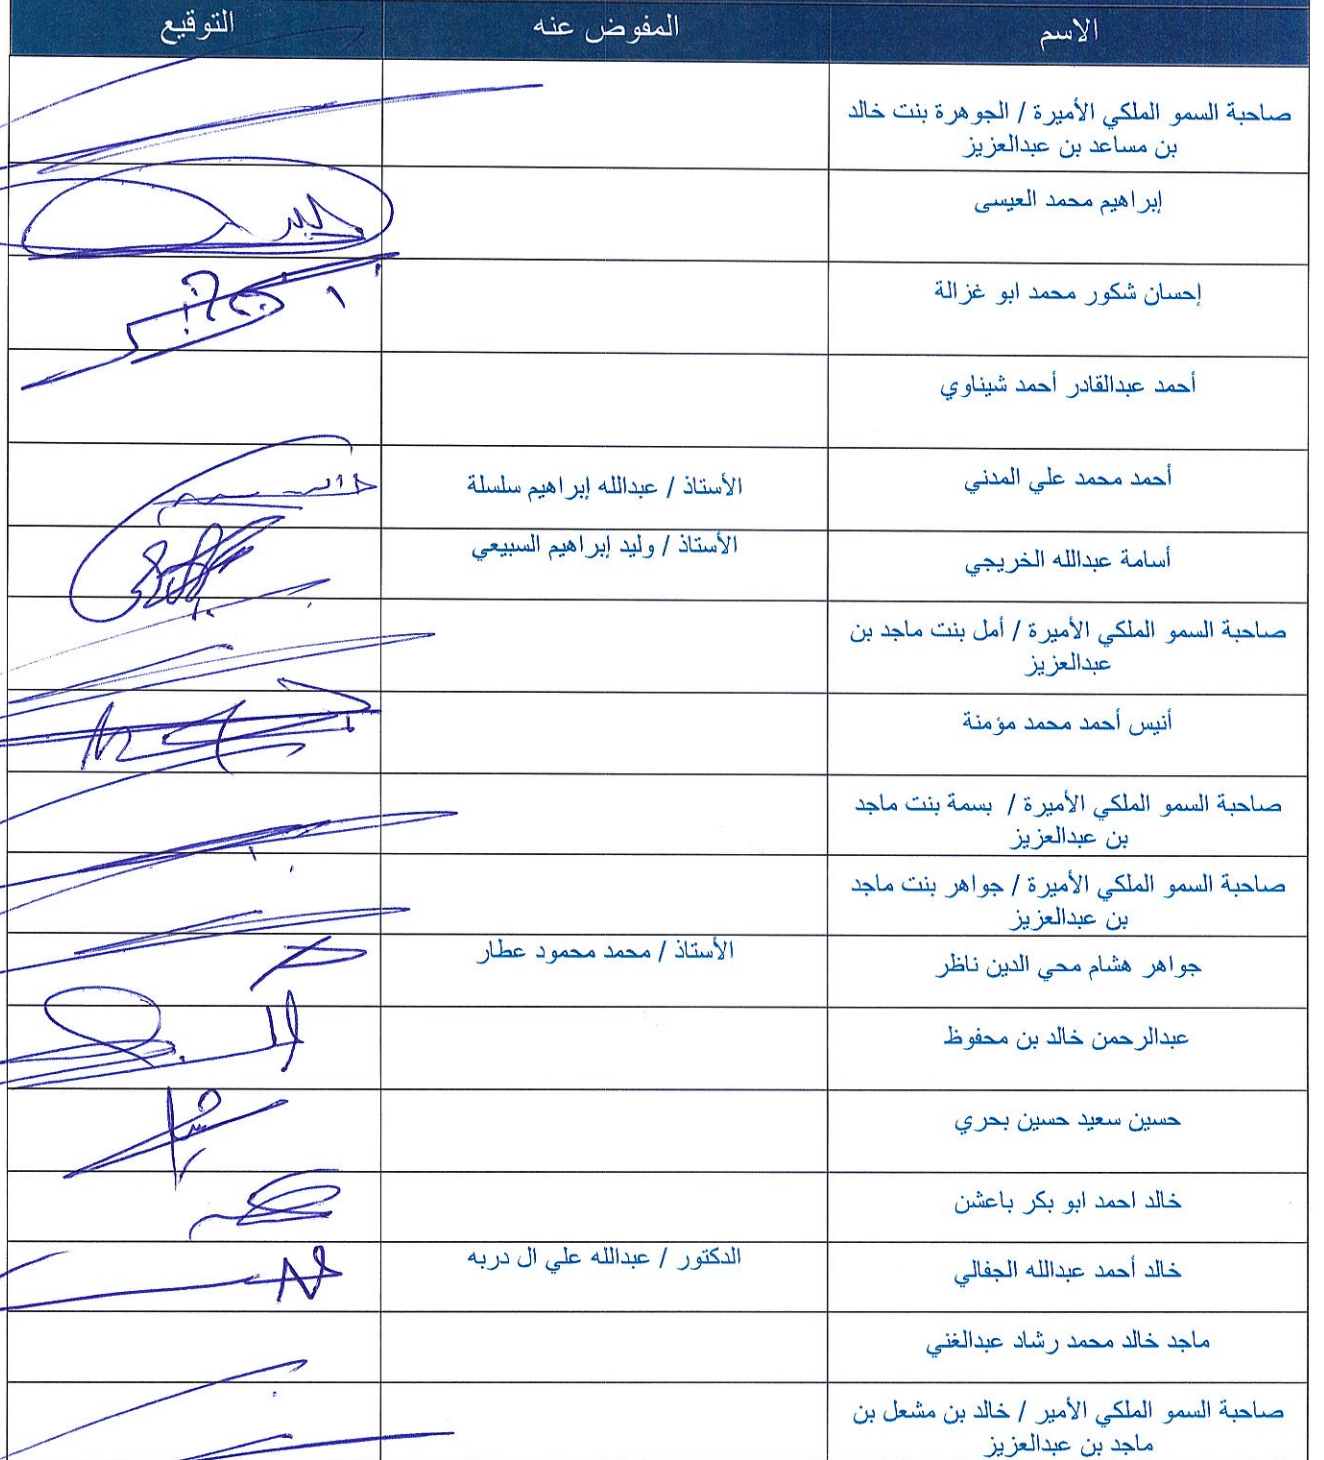 الاسم المفوض عنه التوقيع
صاحبة السمو الملكي الأميرة / الجوهرة بنت خالد
بن مساعد بن عبدالعزيز
إبراهيم محمد العيسى
إحسان شكور محمد ابو غزالة
أحمد عبدالقادر أحمد شيناوي
أحمد محمد علي المدني الأستاذ / عبدالله إبراهيم سلسلة
أسامة عبدالله الخريجي الأستاذ / وليد إبراهيم السبيعي
صاحبة السمو الملكي الأميرة / أمل بنت ماجد بن
عبدالعزيز
أنيس أحمد محمد مؤمنة
صاحبة السمو الملكي الأميرة / بسمة بنت ماجد
بن عبدالعزيز
صاحبة السمو الملكي الأميرة / جواهر بنت ماجد
بن عبدالعزيز
جواهر هشام محي الدين ناظر الأستاذ / محمد محمود عطار
عبدالرحمن خالد بن محفوظ
حسين سعيد حسين بحري
خالد احمد ابو بكر باعشن
خالد أحمد عبدالله الجفالي الدكتور / عبدالله علي ال دربه
ماجد خالد محمد رشاد عبدالغني
صاحبة السمو الملكي الأمير / خالد بن مشعل بن
ماجد بن عبدالعزيز